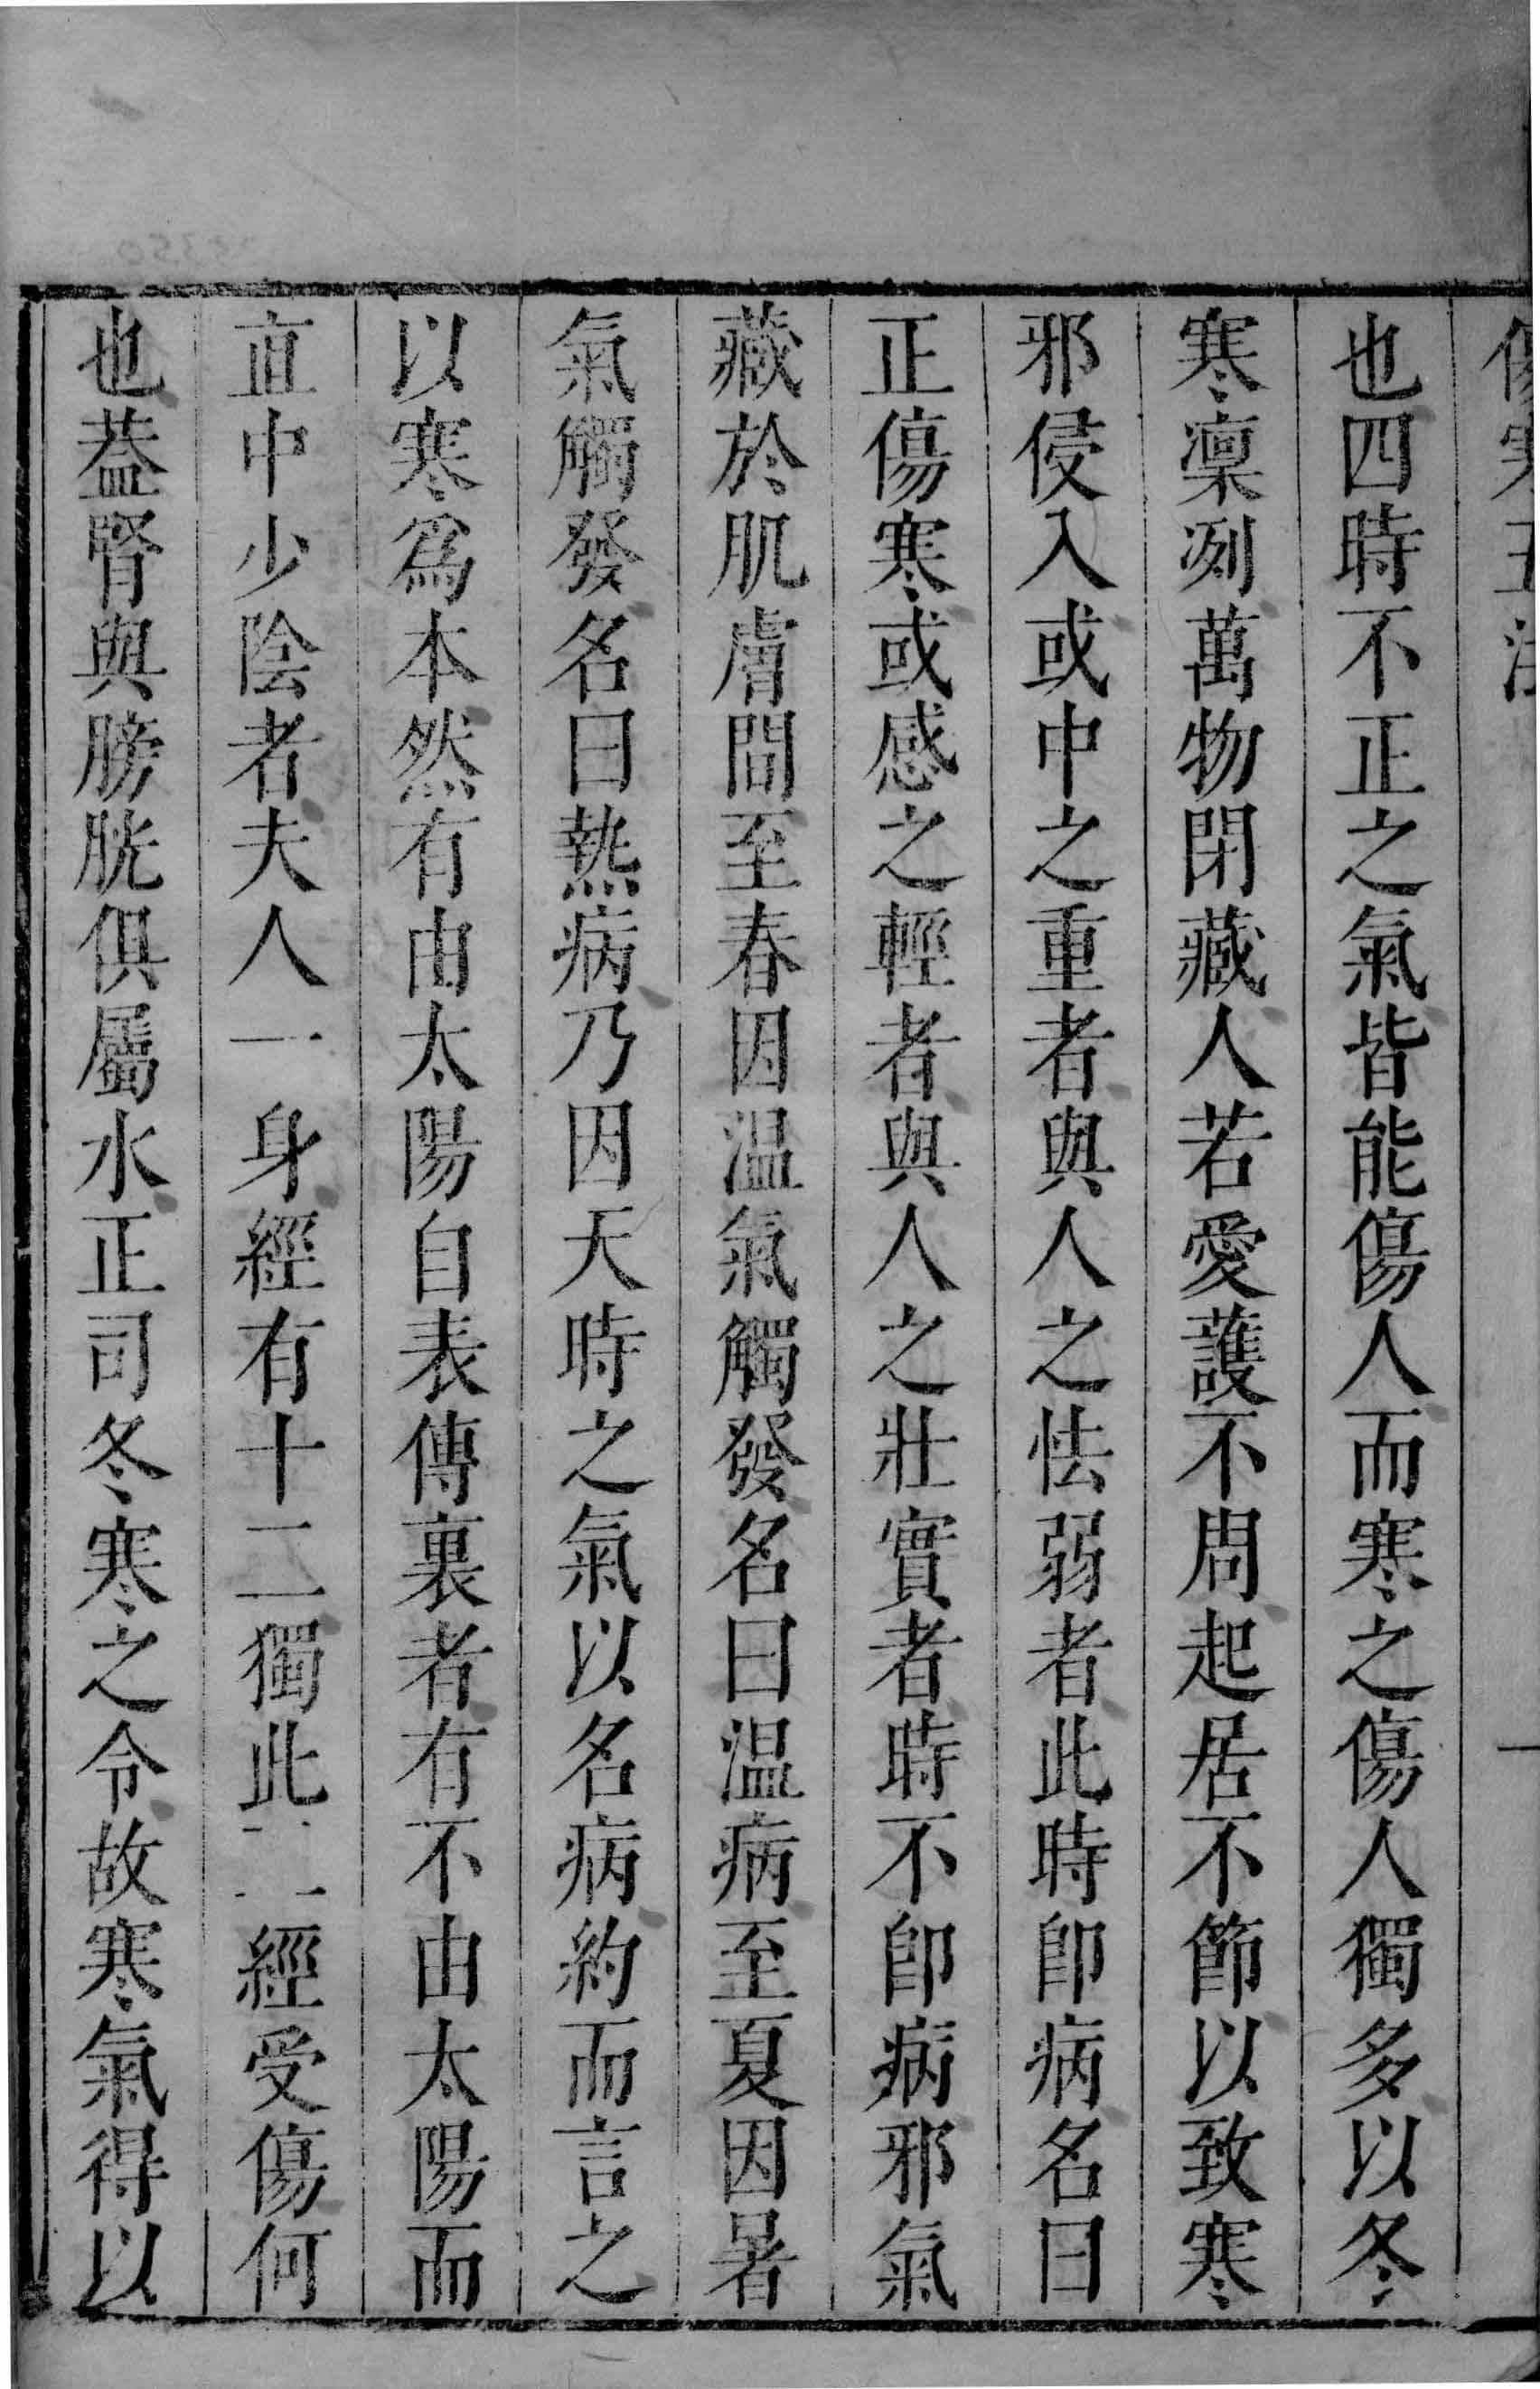 傷寒五法
一
也四時不正之氣皆能傷人而寒之傷人獨多以冬
寒凜冽萬物閉藏人若愛護不周起居不節以致寒
邪侵入或中之重者與人之怯弱者此時卽病名曰
正傷寒或感之輕者與人之壯實者時不卽病邪氣
藏於肌膚間至春因温氣觸發名曰温病至夏因暑
氣觸發名曰熱病乃因天時之氣以名病約而言之
以寒爲本然有由太陽自表傳裏者有不由太陽而
直中少陰者夫人一身經有十二獨此二經受傷何
也葢腎與膀胱俱屬水正司冬寒之令故寒氣得以